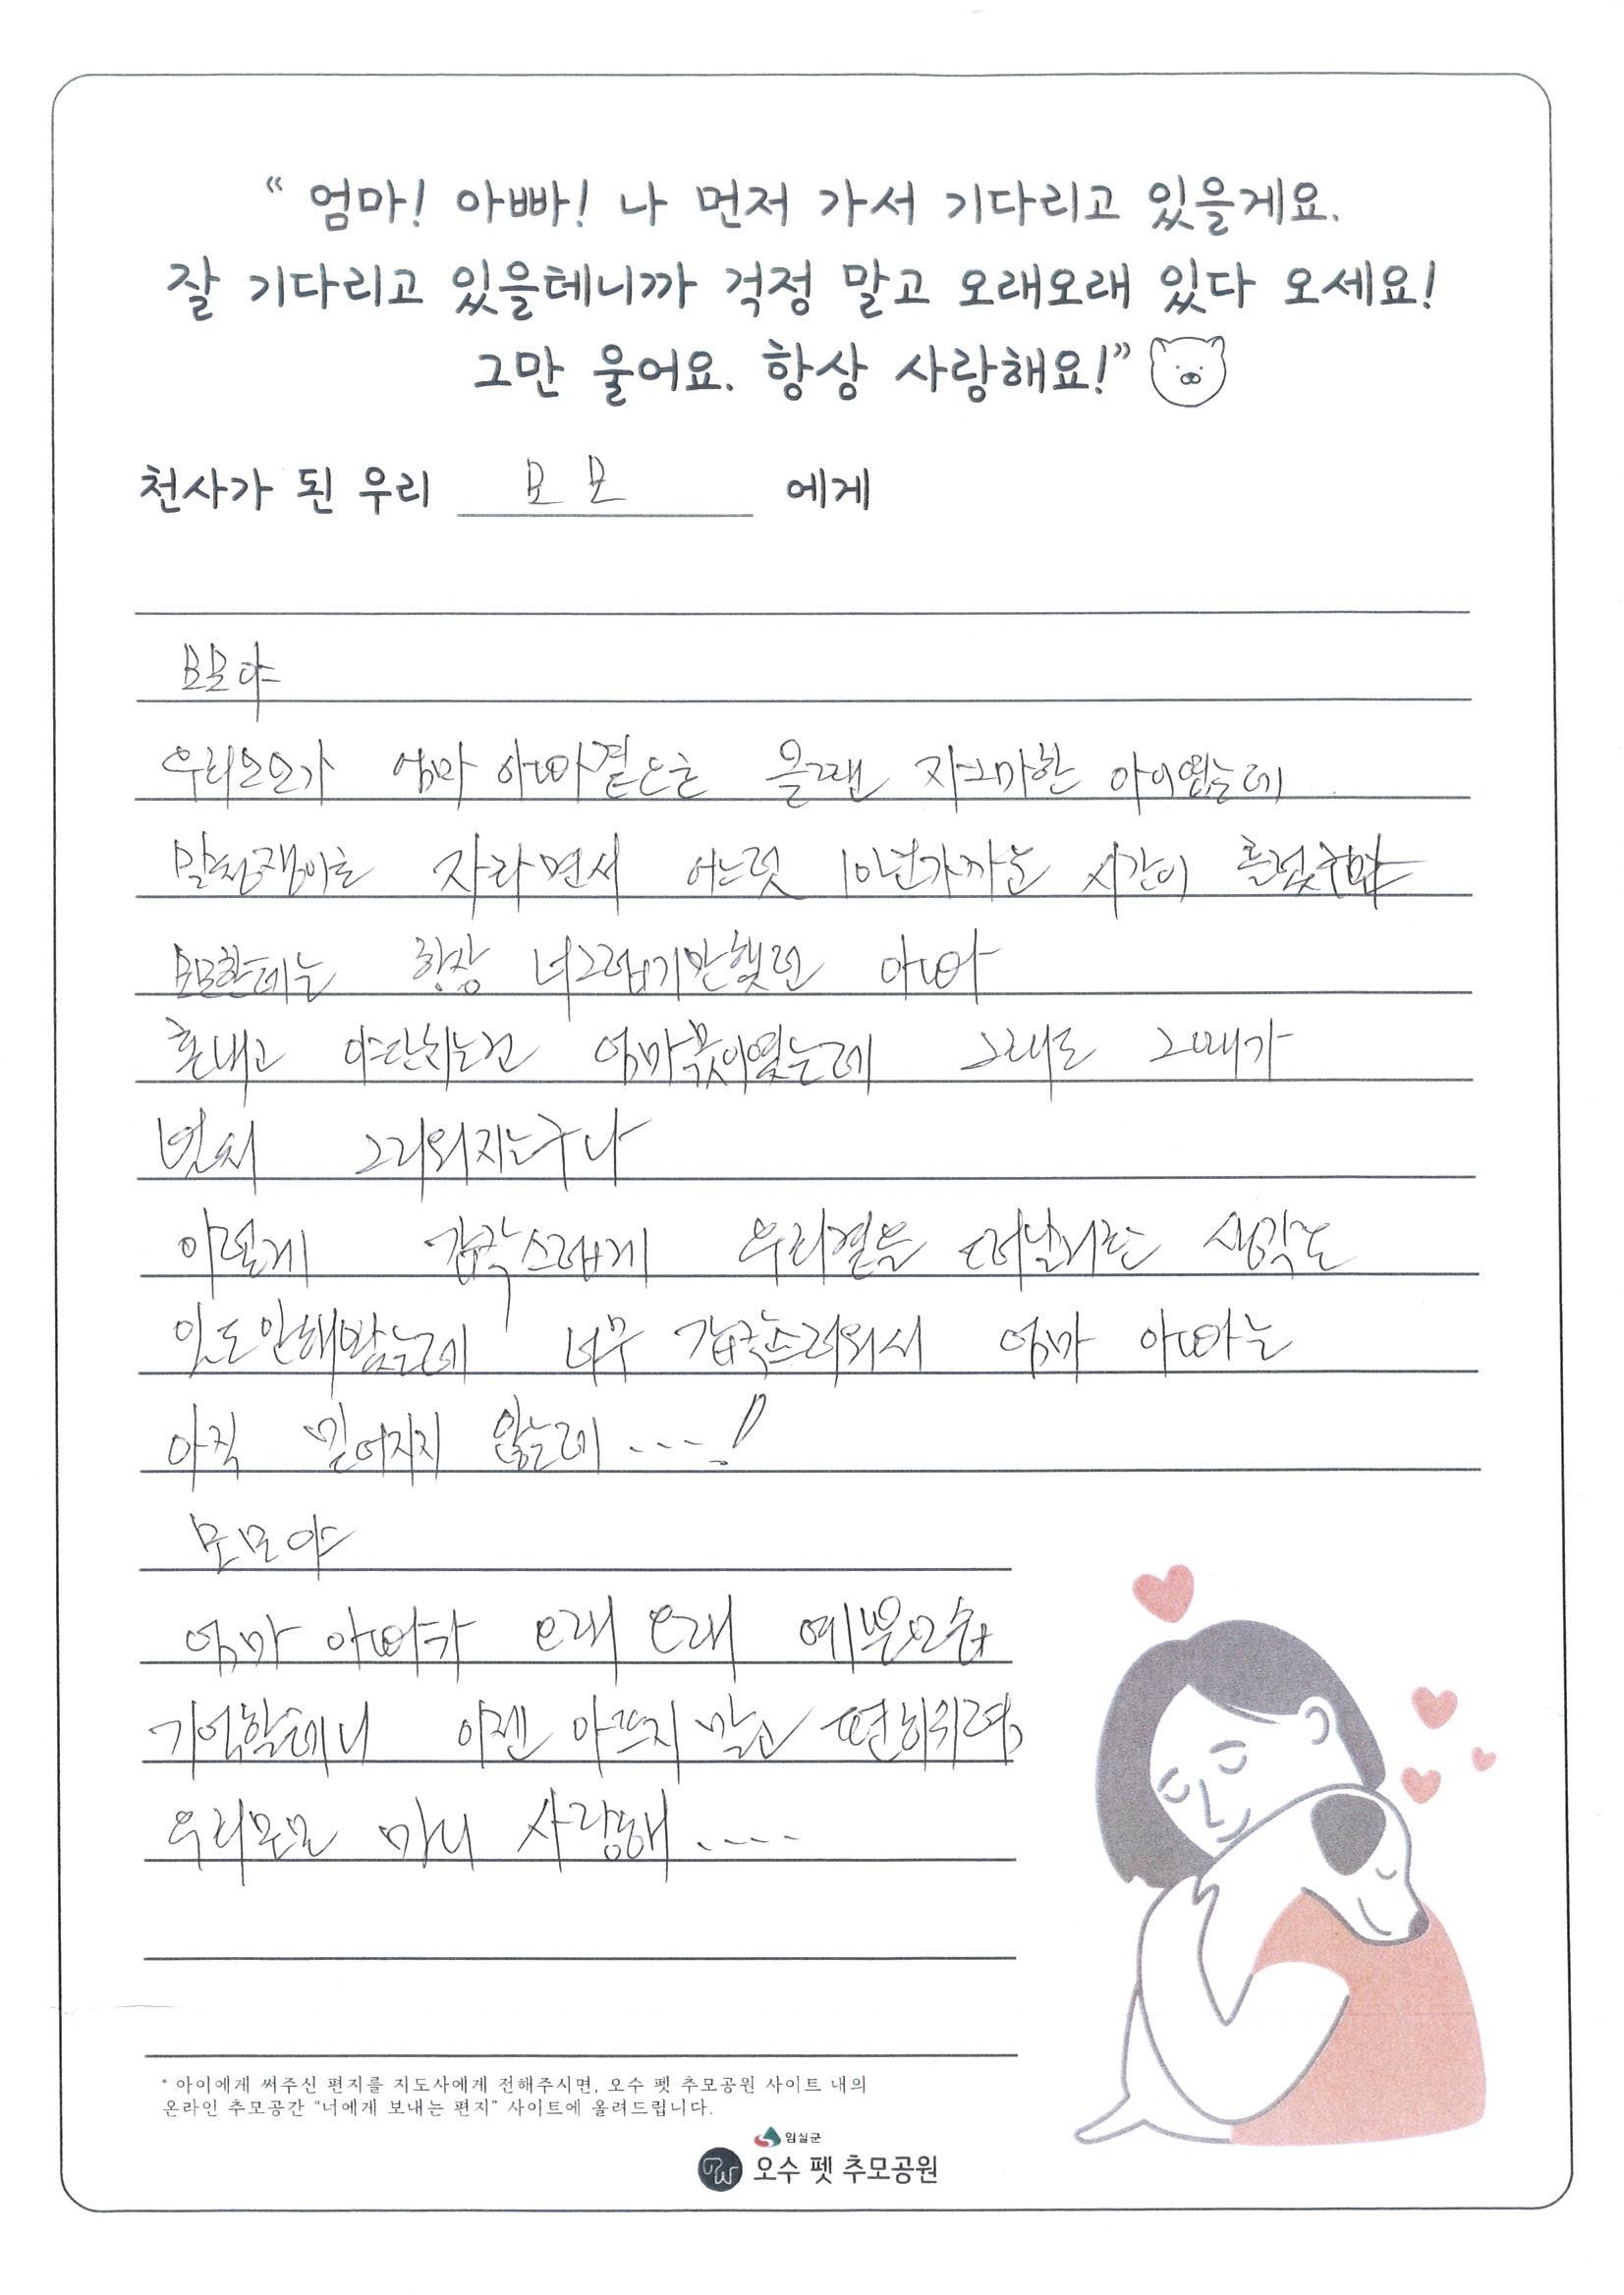 “ 엄마! 아빠! 나 먼저 가서 기다리고 있을게요.
잘 기다리고 있을테니까 걱정 말고 오래오래 있다 오세요!
그만 울어요. 항상 사랑해요!”
천사가 된 우리 모모 에게
모모야
우리모모가 엄마 아빠곁으로 올땐 자그마한 아이였는데
말썽쟁이로 자라면서 어느덧 10년가까운 시간이
모모한테는 항상 너그럽기만했던 아빠
혼내고 야단치는건 엄마몫이였는데 그래도 그때가
벌써 그리워지는구나
이렇게 갑작스럽게 우리곁을 떠날거란 생각도
안해봤는데 너무 갑작스러워서 엄마 아빠는
아직 믿어지지 않는데 ....!
모모야
엄마 아빠가 오래 오래 예쁜모습
기억할테니 이젠 아프지 말고 편히쉬렴,
우리모모 마니 사랑해 ....
* 아이에게 써주신 편지를 지도사에게 전해주시면, 오수 펫 추모공원 사이트 내의
온라인 추모공간 “너에게 보내는 편지” 사이트에 올려드립니다.
임실군
오수 펫 추모공원